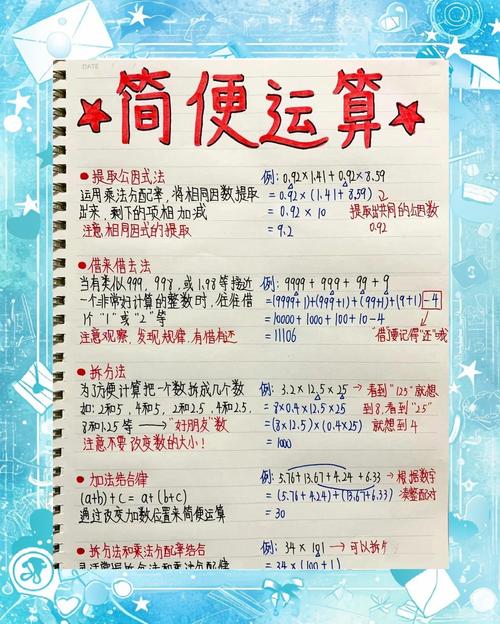 DATE
简便运算
提取公因式法
运用乘法分配率,将相同因数提取
出来,剩下的项相加减
注意相同因式的提取
例: 0.92×1.41+0.92×8.59
=0.92×(1.41+8.59)
=0.92×10
=9.2
提取出共同的公因数
0.92
借来借去法
当有类似999,998,或1.98等接近
一个非常好计算的整数时,往往借
个"1"或"2"等
注意观察,发现规律,有借有还
例: 9999+999+99+9
=(9999+1)+(999+1)+(99+1)+(9+1)-4
=10000+1000+100+10-4
=11106
"借了要记得"还"哦
拆分法
为了方便计算把一个数拆成几个数
如:2和5,4和5,2和2.5,4和2.5,
8和1.25等→"好朋友"数
注意不要改变数的大小!
例: 3.2×12.5×25→看到"125"就想
=8×0.4×12.5×25 到8,看到"25"
=(8×12.5)×(0.4×25) 就想到4
=1000
加法结合律
(a+b)+c=a+(b+c)
通过改变加数位置来简便运算
例: 5.76+13.67+4.24+6.33→根据数字
=(5.76+4.24)+(13.67+6.33) 凑整配对
=30
拆分法和乘法分配率结合
例: 34×101→可以拆分
=34×(100+1)